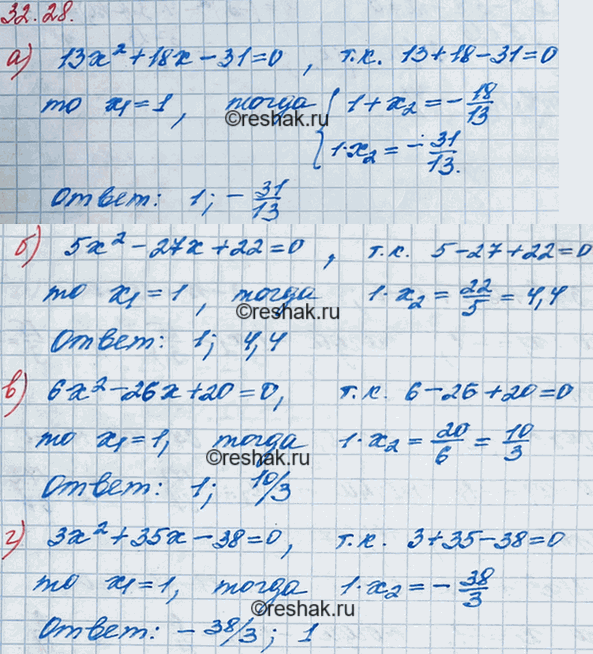 32.28.
а) 13x² + 18x - 31 = 0, т.к. 13 + 18 - 31 = 0
то x₁ = 1, тогда { 1 + x₂ = - 18/13
1·x₂ = - 31/13.
©reshak.ru
Ответ: 1; - 31/13
б) 5x² - 27x + 22 = 0, т.к. 5 - 27 + 22 = 0
то x₁ = 1, тогда 1·x₂ = 22/5 = 4,4
©reshak.ru
Ответ: 1; 4,4
в) 6x² - 26x + 20 = 0, т.к. 6 - 26 + 20 = 0
то x₁ = 1, тогда 1·x₂ = 20/6 = 10/3
©reshak.ru
Ответ: 1; 10/3
г) 3x² + 35x - 38 = 0, т.к. 3 + 35 - 38 = 0
то x₁ = 1, тогда 1·x₂ = - 38/3
©reshak.ru
Ответ: - 38/3; 1